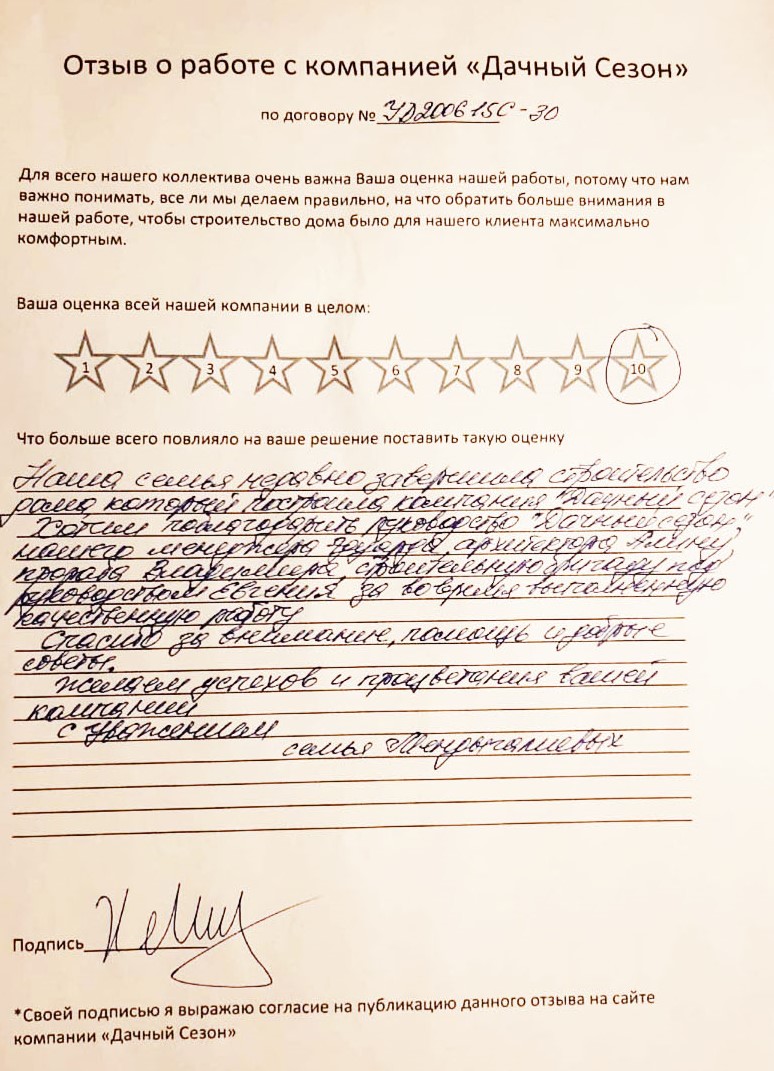 Отзыв о работе с компанией «Дачный Сезон»
по договору № УД200615С-30
Для всего нашего коллектива очень важна Ваша оценка нашей работы, потому что нам
важно понимать, все ли мы делаем правильно, на что обратить больше внимания в
нашей работе, чтобы строительство дома было для нашего клиента максимально
комфортным.
Ваша оценка всей нашей компании в целом:
1 2 3 4 5 6 7 8 9 10
Что больше всего повлияло на ваше решение поставить такую оценку
Наша семья недавно завершила строительство
дома который построила компания "Дачный сезон"
Хотим поблагодарить руководство "Дачный сезон",
нашего менеджера Эдуарда, архитектора Алину,
прораба Владимира, строительную бригаду под
руководством Евгения за вовремя выполненную
качественную работу
Спасибо за внимание, помощь и добрые
советы.
Желаем успехов и процветания вашей
компании
С уважением
семья
Подпись
*Своей подписью я выражаю согласие на публикацию данного отзыва на сайте
компании «Дачный Сезон»